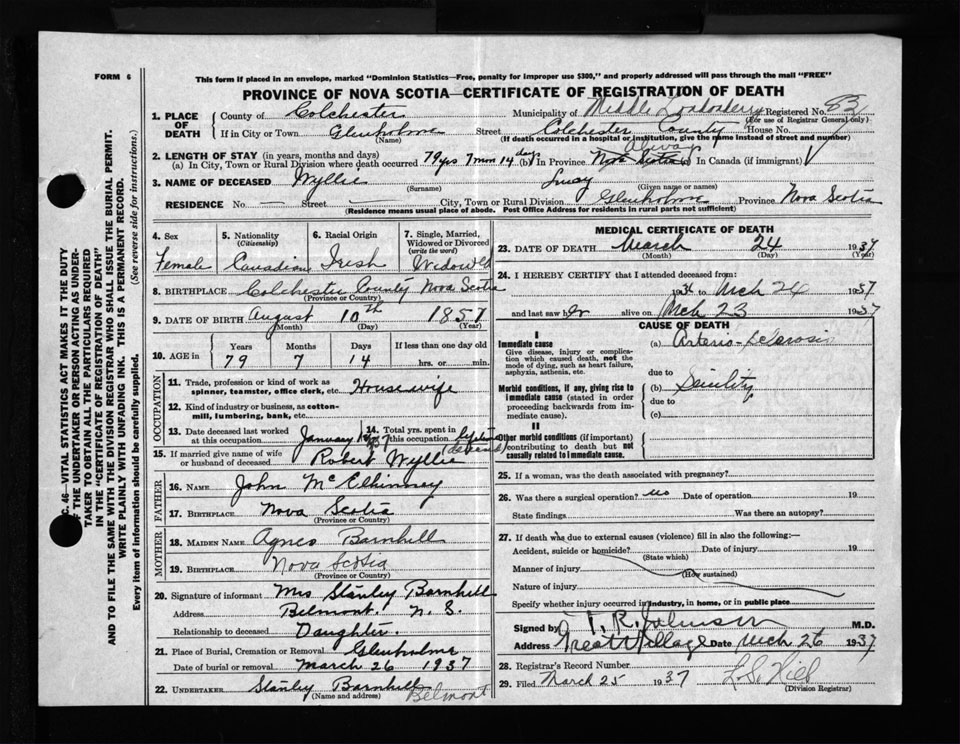 FORM 6
This form if placed in an envelope, marked "Dominion Statistics—Free, penalty for improper use $300," and properly addressed will pass through the mail "FREE"
PROVINCE OF NOVA SCOTIA—CERTIFICATE OF REGISTRATION OF DEATH
1. PLACE OF DEATH { County of Colchester Municipality of Middle Londonderry Registered No. 83
(For use of Registrar General only)
If in City or Town Glenholme Street Colchester County House No.
(Name) (If death occurred in a hospital or institution, give the name instead of street and number)
2. LENGTH OF STAY (in years, months and days)
(a) In City, Town or Rural Division where death occurred 79 yrs 7 mon 14 days In Province Always Nova Scotia In Canada (if immigrant)
3. NAME OF DECEASED Wyllie Lucy
(Surname) (Given name or names)
RESIDENCE No. — Street — City, Town or Rural Division Glenholme Province Nova Scotia
(Residence means usual place of abode. Post Office Address for residents in rural parts not sufficient)
4. Sex Female
5. Nationality (Citizenship) Canadian
6. Racial Origin Irish
7. Single, Married, Widowed or Divorced (write the word) Widowed
8. BIRTHPLACE Colchester County Nova Scotia
(Province or Country)
9. DATE OF BIRTH August 10th 1857
(Month) (Day) (Year)
10. AGE in Years Months Days If less than one day old
79 7 14 hrs. or min.
OCCUPATION
11. Trade, profession or kind of work as spinner, teamster, office clerk, etc. Housewife
12. Kind of industry or business, as cotton-mill, lumbering, bank, etc.
13. Date deceased last worked at this occupation January 1937
14. Total yrs. spent in this occupation lifetime
15. If married give name of wife or husband of deceased Robert Wyllie
FATHER
16. NAME John McElhinney
17. BIRTHPLACE Nova Scotia
(Province or Country)
MOTHER
18. MAIDEN NAME Agnes Barnhill
19. BIRTHPLACE Nova Scotia
(Province or Country)
20. Signature of informant Mrs Stanley Barnhill
Address Belmont. N. S.
Relationship to deceased Daughter.
21. Place of Burial, Cremation or Removal Glenholme
Date of burial or removal March 26 1937
22. UNDERTAKER Stanley Barnhill Belmont
(Name and address)
MEDICAL CERTIFICATE OF DEATH
23. DATE OF DEATH March 24 1937
(Month) (Day) (Year)
24. I HEREBY CERTIFY that I attended deceased from:
1936 to Mch 24 1937
and last saw her alive on Mch 23 1937
CAUSE OF DEATH
I
Immediate cause (a) Arterio-Sclerosis
Give disease, injury or complication which caused death, not the mode of dying, such as heart failure, asphyxia, asthenia, etc.
due to
Morbid conditions, if any, giving rise to immediate cause (stated in order proceeding backwards from immediate cause).
(b) Senility
due to
(c)
II
Other morbid conditions (if important) contributing to death but not causally related to immediate cause.
25. If a woman, was the death associated with pregnancy?
26. Was there a surgical operation? no Date of operation 19
State findings Was there an autopsy?
27. If death was due to external causes (violence) fill in also the following:—
Accident, suicide or homicide? Date of injury 19
(State which)
Manner of injury
(How sustained)
Nature of injury
Specify whether injury occurred in industry, in home, or in public place
Signed by T. R. Johnson M.D.
Address Great Village Date Mch 26 1937
28. Registrar's Record Number
29. Filed March 25 1937
(Division Registrar)
C. 46—VITAL STATISTICS ACT MAKES IT THE DUTY
OF THE UNDERTAKER OR PERSON ACTING AS UNDER-
TAKER TO OBTAIN ALL THE PARTICULARS REQUIRED
IN THE "CERTIFICATE OF REGISTRATION OF DEATH"
AND TO FILE THE SAME WITH THE DIVISION REGISTRAR WHO SHALL ISSUE THE BURIAL PERMIT.
WRITE PLAINLY WITH UNFADING INK. THIS IS A PERMANENT RECORD.
Every item of information should be carefully supplied. (See reverse side for instructions.)